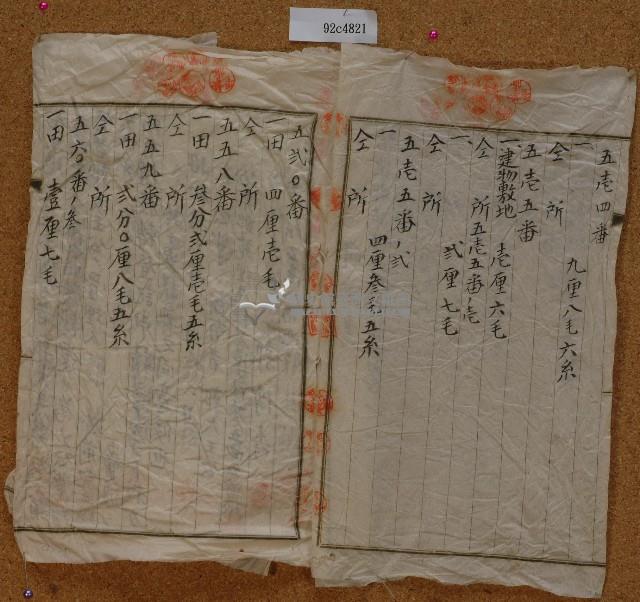 92c4821
五壱四番
一　九厘八毛六糸
仝所
五壱五番
一建物敷地　壱厘六毛
仝所五壱五番ノ壱
一　弐厘七毛
仝所
五壱五番ノ弐
一　四厘叁毛五糸
仝所
五弐〇番
一田　四厘壱毛
仝所
五五八番
一田　叁分弐厘壱毛五糸
仝所
五五九番
一田　弐分〇厘八毛五糸
仝所
五六〇番ノ叁
一田　壱厘七毛